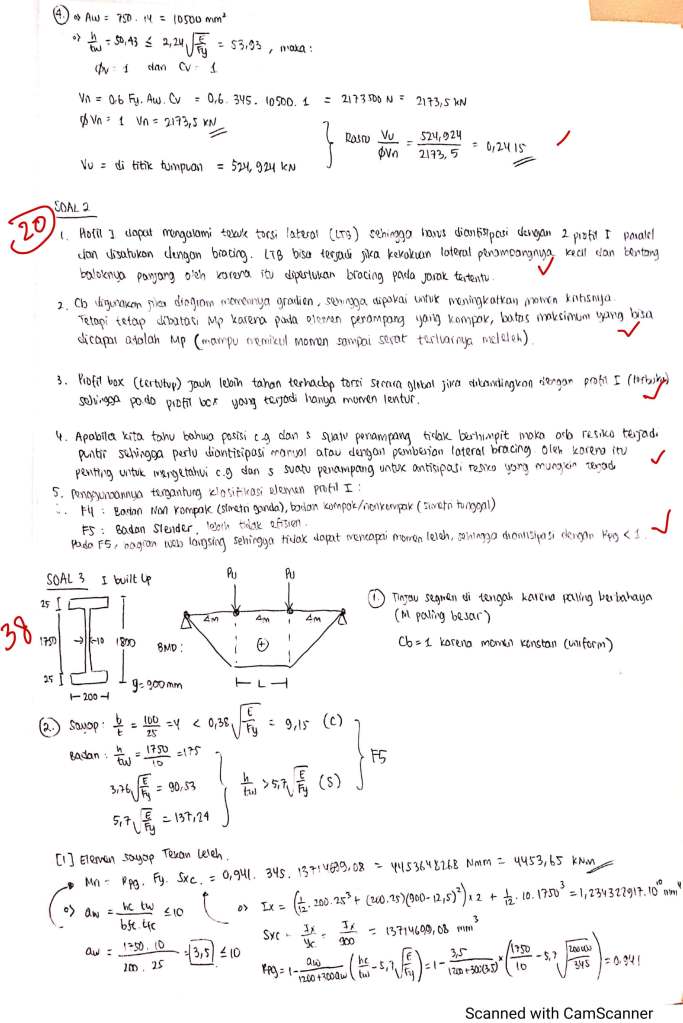 4. => Aw = 750 . 14 = 10500 mm²
=> h/tw = 50,43 ≤ 2,24 √(E/Fy) = 53,93, maka :
φv = 1 dan Cv = 1
Vn = 0.6 Fy. Aw. Cv = 0,6 . 345 . 10500 . 1 = 2173500 N = 2173,5 kN
φVn = 1 Vn = 2173,5 kN
Rasio Vu/φVn = 524,924/2173,5 = 0,2415
Vu = di titik tumpuan = 524,924 kN
SOAL 2
20
1. Profil I dapat mengalami tekuk torsi lateral (LTB) sehingga harus diantisipasi dengan 2 profil I paralel
dan disatukan dengan bracing. LTB bisa terjadi jika kekakuan lateral penampangnya kecil dan bentang
baloknya panjang oleh karena itu diperlukan bracing pada jarak tertentu.
2. Cb digunakan jika diagram momennya gradien, sehingga dipakai untuk meningkatkan momen kritisnya.
Tetapi tetap dibatasi Mp karena pada elemen penampang yang kompak, batas maksimum yang bisa
dicapai adalah Mp (mampu memikul momen sampai serat terluarnya meleleh).
3. Profil box (tertutup) jauh lebih tahan terhadap torsi secara global jika dibandingkan dengan profil I (terbuka)
sehingga pada profil box yang terjadi hanya momen lentur.
4. Apabila kita tahu bahwa posisi c.g dan s suatu penampang tidak berhimpit maka ada resiko terjadi
puntir sehingga perlu diantisipasi manual atau dengan pemberian lateral bracing oleh karena itu
penting untuk mengetahui c.g dan s suatu penampang untuk antisipasi resiko yang mungkin terjadi
5. Penggunaannya tergantung klasifikasi elemen profil I :
∴ F4 : Badan Non kompak (simetri ganda), badan kompak/nonkompak (simetri tunggal)
F5 : Badan Slender, lebih tidak efisien.
Pada F5, bagian web langsing sehingga tidak dapat mencapai momen leleh, sehingga diantisipasi dengan Rpg < 1.
SOAL 3 I built up
38
25
1750
25
10
1800
200
y = 900 mm
Pu Pu
4m 4m 4m
BMD :
+
L
1. Tinjau segmen di tengah karena paling berbahaya
(M paling besar)
Cb = 1 karena momen konstan (uniform)
2. Sayap : b/t = 100/25 = 4 < 0,38 √(E/Fy) = 9,15 (C)
Badan : h/tw = 1750/10 = 175
3,76 √(E/Fy) = 90,53
5,7 √(E/Fy) = 137,24
h/tw > 5,7 √(E/Fy) (S)
F5
[1] Elemen Sayap Tekan Leleh.
Mn = Rpg. Fy. Sxc = 0,941. 345. 13714699,08 = 4453648268 Nmm = 4453,65 kNm
=> aw = hc tw / bfc.tfc ≤ 10
aw = 1750 . 10 / 200 . 25 = 3,5 ≤ 10
=> Ix = (1/12 . 200 . 25³ + (200.25)(900-12,5)²) x 2 + 1/12 . 10 . 1750³ = 1,234322917.10¹⁰ mm⁴
Sxc = Ix/yc = Ix/900 = 13714699,08 mm³
Rpg = 1 - aw/(1200+300aw) (hc/tw - 5,7 √(E/Fy)) = 1 - 3,5/(1200+300(3,5)) x (1750/10 - 5,7 √(200000/345)) = 0.941
Scanned with CamScanner